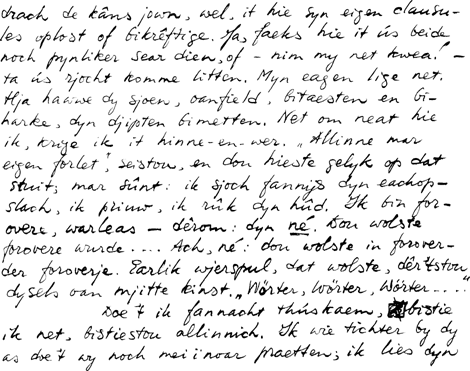 drach de kâns jown, wel, it hie syn eigen clausu-
les oplost of bikrêftige. Ja, faeks hie it ús beide
noch pynliker sear dien, of – nim my net kwea! –
ta ús rjocht komme litten. Myn eagen lige net.
Hja hawwe dy sjoen, oanfield, bitaesten en bi-
harke, dyn djipten bimetten. Net om neat hie
ik, krige ik it hinne-en-wer. „Allinne mar
eigen forlet", seistou, en dou hieste gelyk op dat
stuit; mar sûnt: ik sjoch fannijs dyn eachop-
slach, ik priuw, ik rûk dyn hûd. Ik bin for-
overe, warleas – dêrom: dyn né. Dou wolste
forovere wurde.... Ach, né: dou wolste in forover-
der foroverje. Earlik wjerspul, dat wolste, dêr'tstou
dysels oan mjitte kinst. „Wörter, Wörter, Wörter....."
Doe't ik fannacht thúskaem, bistie
ik net, bistiestou allinnich. Ik wie tichter by dy
as doe't wy noch mei-inoar praetten; ik lies dyn